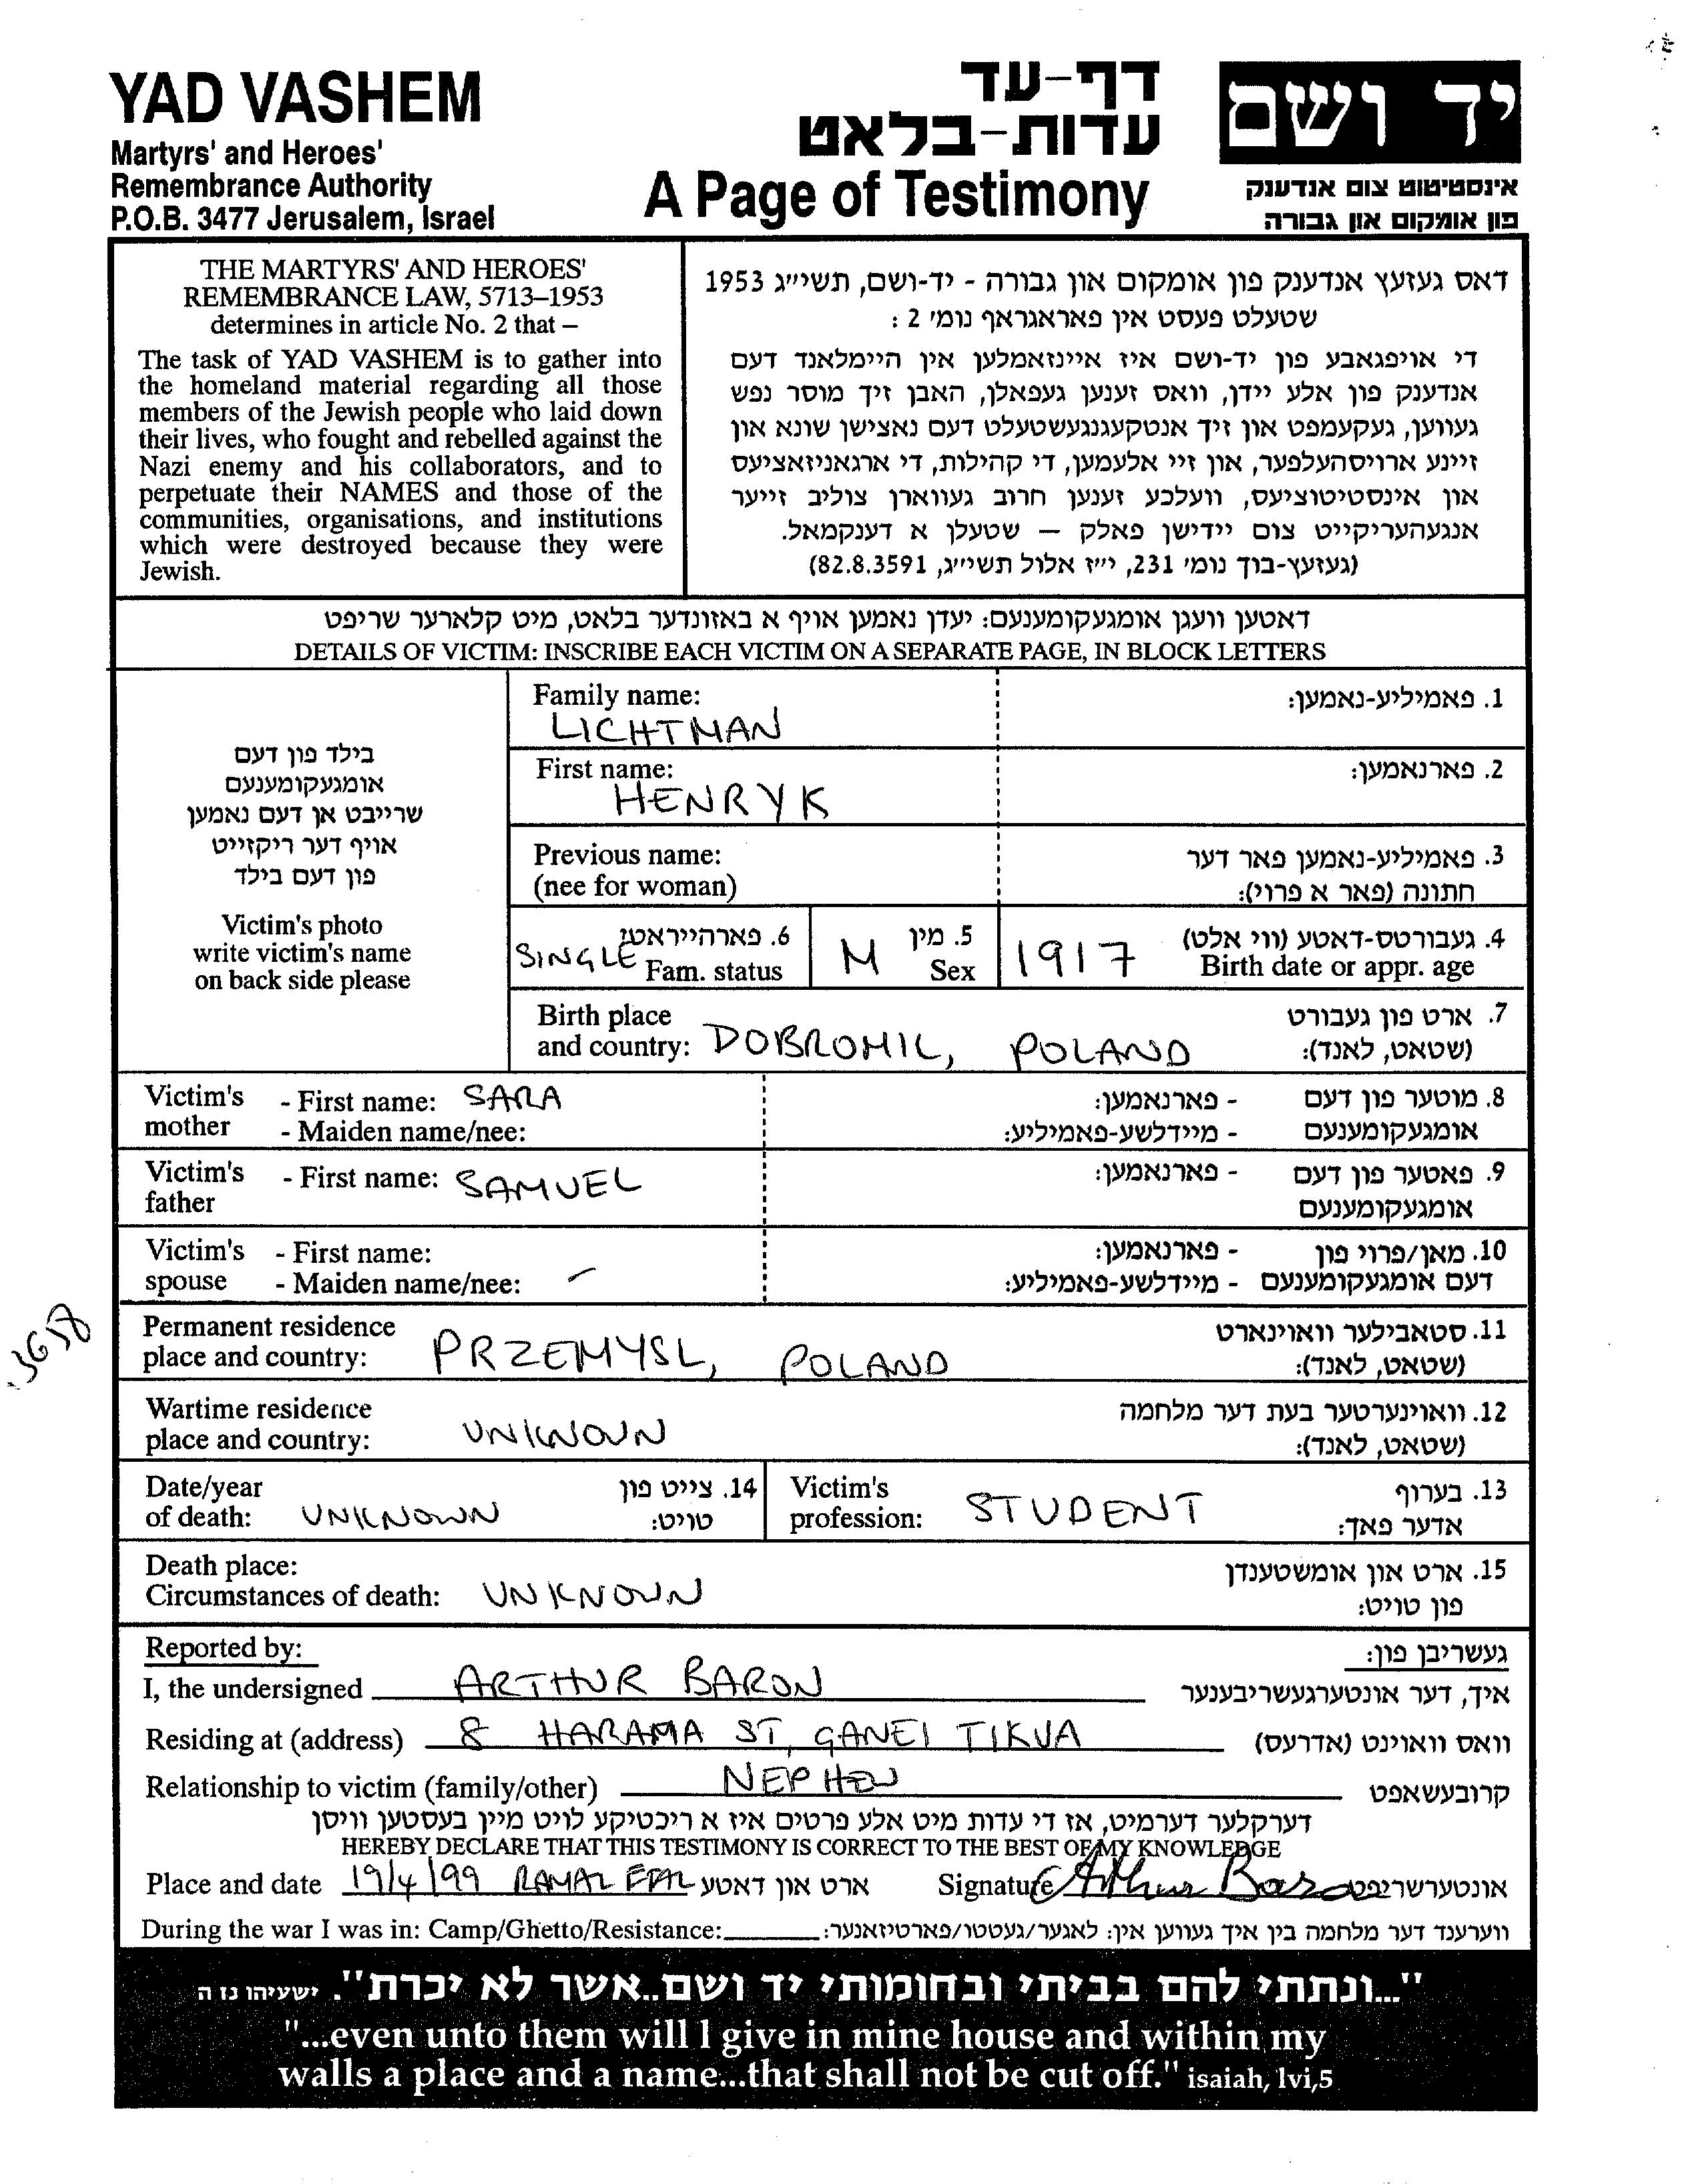 YAD VASHEM
Martyrs' and Heroes'
Remembrance Authority
P.O.B. 3477 Jerusalem, Israel
דף-עד
עדות-בלאט
A Page of Testimony
יד ושם
אינסטיטוט צום אנדענק
פון אומקום און גבורה
THE MARTYRS' AND HEROES'
REMEMBRANCE LAW, 5713–1953
determines in article No. 2 that –
The task of YAD VASHEM is to gather into
the homeland material regarding all those
members of the Jewish people who laid down
their lives, who fought and rebelled against the
Nazi enemy and his collaborators, and to
perpetuate their NAMES and those of the
communities, organisations, and institutions
which were destroyed because they were
Jewish.
דאס געזעץ אנדענק פון אומקום און גבורה - יד-ושם, תשי״ג 1953
שטעלט פעסט אין פאראגראף נומ׳ 2 :
די אויפגאבע פון יד-ושם איז איינזאמלען אין היימלאנד דעם
אנדענק פון אלע יידן, וואס זענען געפאלן, האבן זיך מוסר נפש
געווען, געקעמפט און זיך אנטקעגנגעשטעלט דעם נאצישן שונא און
זיינע ארויסהעלפער, און זיי אלעמען, די קהילות, די ארגאניזאציעס
און אינסטיטוציעס, וועלכע זענען חרוב געווארן צוליב זייער
אנגעהעריקייט צום יידישן פאלק — שטעלן א דענקמאל.
(געזעץ-בוך נומ׳ 231, י״ז אלול תשי״ג, 82.8.3591)
דאטען וועגן אומגעקומענעם: יעדן נאמען אויף א באזונדער בלאט, מיט קלארער שריפט
DETAILS OF VICTIM: INSCRIBE EACH VICTIM ON A SEPARATE PAGE, IN BLOCK LETTERS
בילד פון דעם
אומגעקומענעם
שרייבט אן דעם נאמען
אויף דער ריקזייט
פון דעם בילד
Victim's photo
write victim's name
on back side please
Family name: 1. פאמיליע-נאמען:
LICHTMAN
First name: 2. פארנאמען:
HENRYK
Previous name: 3. פאמיליע-נאמען פאר דער
(nee for woman) חתונה (פאר א פרוי):
SINGLE 6. פארהייראטן M 5. מין 1917 4. געבורטס-דאטע (ווי אלט)
Fam. status Sex Birth date or appr. age
Birth place 7. ארט פון געבורט
and country: DOBROMIL, POLAND (שטאט, לאנד):
Victim's - First name: SARA - פארנאמען: 8. מוטער פון דעם
mother - Maiden name/nee: - מיידלשע-פאמיליע: אומגעקומענעם
Victim's - First name: SAMUEL - פארנאמען: 9. פאטער פון דעם
father אומגעקומענעם
Victim's - First name: - פארנאמען: 10. מאן/פרוי פון
spouse - Maiden name/nee: – - מיידלשע-פאמיליע: דעם אומגעקומענעם
Permanent residence 11. סטאבילער וואוינארט
place and country: PRZEMYSL, POLAND (שטאט, לאנד):
Wartime residence 12. וואוינערטער בעת דער מלחמה
place and country: UNKNOWN (שטאט, לאנד):
Date/year 14. צייט פון Victim's 13. בערוף
of death: UNKNOWN טויט: profession: STUDENT אדער פאך:
Death place: 15. ארט און אומשטענדן
Circumstances of death: UNKNOWN פון טויט:
Reported by: געשריבן פון:
I, the undersigned ARTHUR BARON איך, דער אונטערגעשריבענער
Residing at (address) 8 HARAMA ST, GANEI TIKVA וואס וואוינט (אדרעס)
Relationship to victim (family/other) NEPHEW קרובעשאפט
דערקלער דערמיט, אז די עדות מיט אלע פרטים איז א ריכטיקע לויט מיין בעסטען וויסן
HEREBY DECLARE THAT THIS TESTIMONY IS CORRECT TO THE BEST OF MY KNOWLEDGE
Place and date 19/4/99 RAMAT EFAL ארט און דאטע Signature Arthur Baron אונטערשריפט
During the war I was in: Camp/Ghetto/Resistance: ווערענד דער מלחמה בין איך געווען אין: לאגער/געטטו/פארטיזאנער:
"...ונתתי להם בביתי ובחומותי יד ושם..אשר לא יכרת". ישעיהו נז ה
"...even unto them will I give in mine house and within my
walls a place and a name...that shall not be cut off." isaiah, lvi,5